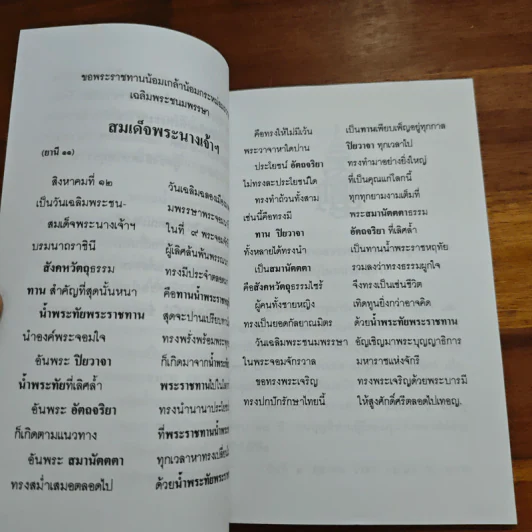 ขอพระราชทานน้อมเกล้าน้อมกระหม่อม
เฉลิมพระชนมพรรษา
สมเด็จพระนางเจ้าฯ
(ยานี ๑๑)
สิงหาคมที่ ๑๒ วันเฉลิมฉลอง
เป็นวันเฉลิมพระชน- มพรรษาพระ
สมเด็จพระนางเจ้าฯ ในที่ ๙ พระ
บรมนาถราชินี ผู้เลิศล้น
สังคหวัตถุธรรม ทรงมีประจำ
ทาน สำคัญที่สุดนั้นหนา คือทานน้ำพระ
น้ำพระทัยพระราชทาน สุดจะปานเปรียบ
นำองค์พระจอมใจ ทรงพรั่งพร้อม
อันพระ ปิยวาจา ก็เกิดมาจาก
น้ำพระทัยที่เลิศล้ำ พระราชทานไป
อันพระ อัตถจริยา ทรงนำนานา
ก็เกิดตามแนวทาง ที่พระราชทาน
อันพระ สมานัตตตา ทุกเวลา
ทรงสม่ำเสมอตลอดไป ด้วยน้ำพระทัยพระ
คือทรงให้ไม่มีเว้น เป็นทานเพียบเพ็ญอยู่ทุกกาล
พระวาจาหาใดปาน ปิยวาจา ทุกเวลาไป
ประโยชน์ อัตถจริยา ทรงทำมาอย่างยิ่งใหญ่
ไม่ทรงละประโยชน์ใด ที่เป็นคุณแก่โลกนี้
ทรงทำถ้วนทั้งสาม ทุกทุกยามงามเต็มที่
เช่นนี้คือทรงมี พระสมานัตตตาธรรม
ทาน ปิยวาจา อัตถจริยา ที่เลิศล้ำ
ทั้งหลายได้ทรงนำ เป็นทานน้ำพระราชหฤทัย
เป็นสมานัตตตา รวมลงว่าทรงธรรมผูกใจ
คือสังคหวัตถุธรรมไซร้ จึงทรงเป็นเช่นชีวิต
ผู้คนทั้งชายหญิง เทิดทูนยิ่งกว่าอาจคิด
ทรงเป็นยอดกัลยาณมิตร ด้วยน้ำพระทัยพระราชทาน
วันเฉลิมพระชนมพรรษา อัญเชิญมาพระบุญญาธิการ
ในพระจอมจักรวาล มหาราชแห่งจักรี
ขอทรงพระเจริญ ทรงพระเจริญด้วยพระบารมี
ทรงปกปักรักษาไทยนี้ ให้สูงศักดิ์ศรีตลอดไปเทอญ.